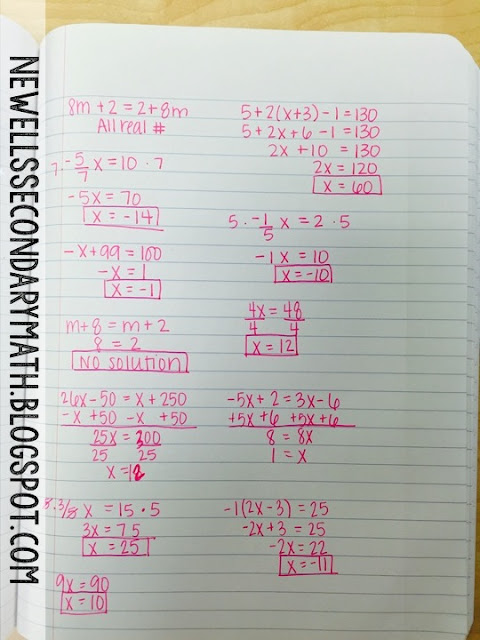 NEWELLSSECONDARYMATH.BLOGSPOT.COM
8m + 2 = 2 + 8m
All real #
7 · -5/7 x = 10 · 7
-5x = 70
x = -14
-x + 99 = 100
-x = 1
x = -1
m + 8 = m + 2
8 = 2
No solution
26x - 50 = x + 250
-x +50 -x +50
25x = 300
25 25
x = 12
5 · 3/5 x = 15 · 5
3x = 75
x = 25
9x = 90
x = 10
5 + 2(x+3) - 1 = 130
5 + 2x + 6 - 1 = 130
2x + 10 = 130
2x = 120
x = 60
5 · -1/5 x = 2 · 5
-1x = 10
x = -10
4x = 48
4 4
x = 12
-5x + 2 = 3x - 6
+5x + 6 +5x + 6
8 = 8x
1 = x
-1(2x - 3) = 25
-2x + 3 = 25
-2x = 22
x = -11